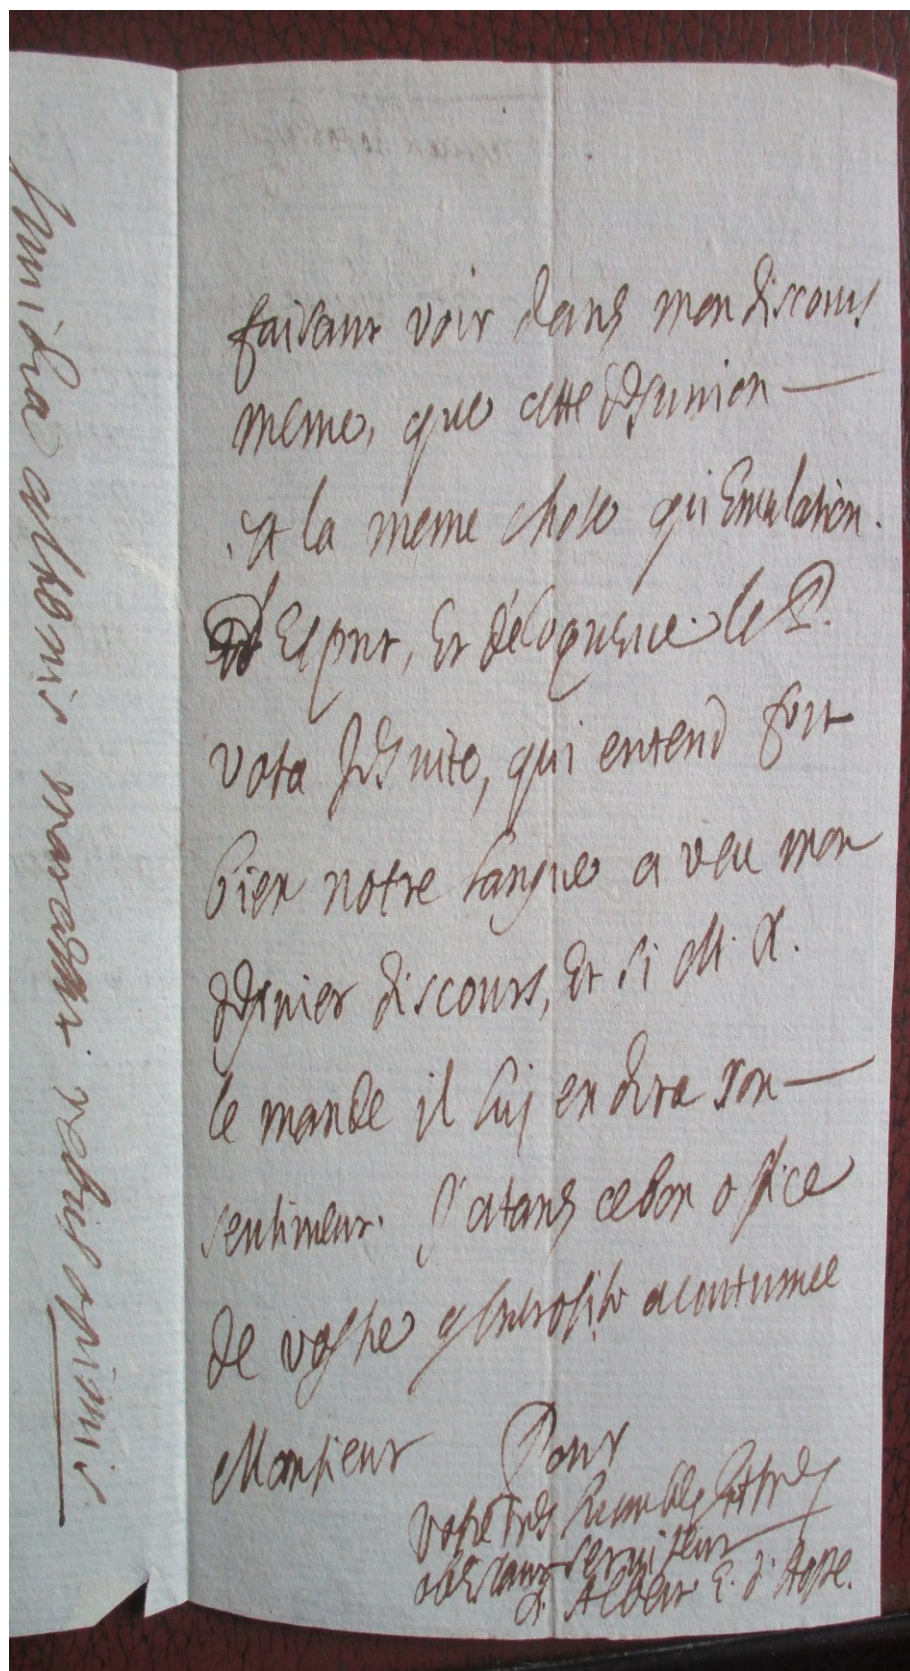 faisant voir dans mon discours
meme, que cette desunion —
est la meme chose qu'Emulation.
d'Esprit, Et d'eloquence. le P.
Vota Jesuite, qui entend fort
bien notre langue a veu mon
dernier discours, Et si M. R.
le mande il luy en dira son —
sentiment. J'atans ce bon office
de vostre generosite acoutumee
Monsieur Pour
Vostre tres humble et tres
obeisant serviteur
Albert E. d'
Invidia rebus opimis